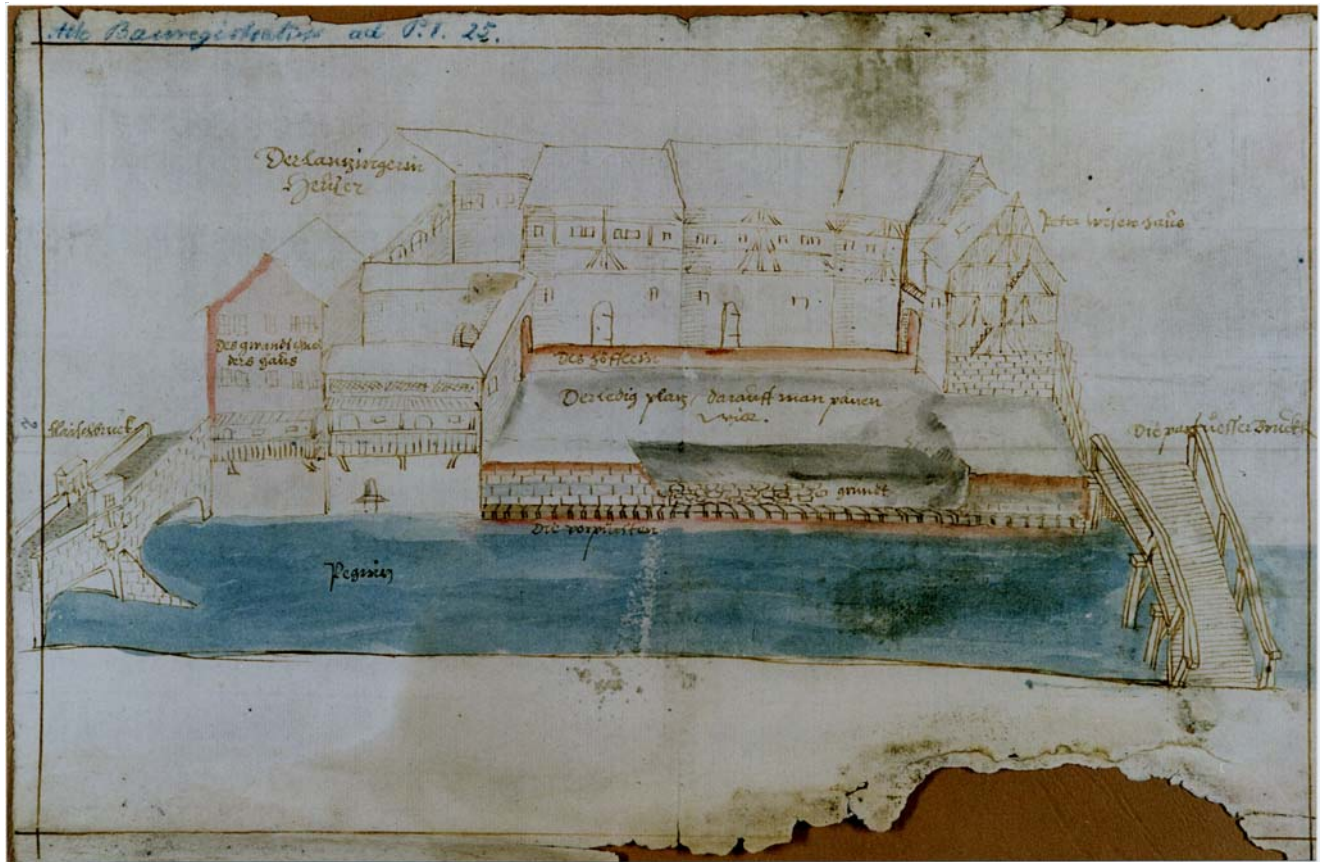 Alte Bauregistratur ad P. 1. 25.
Der Lantzingerin
Heuser
Peter Weisen haus
Des gwandtschnei
ders haus
Des höfflein
Der ledig platz / darauff man pauen
will.
fleischbruck
Die parfuesser Bruckh
grundt
Die vorpürsten
Pegnitz